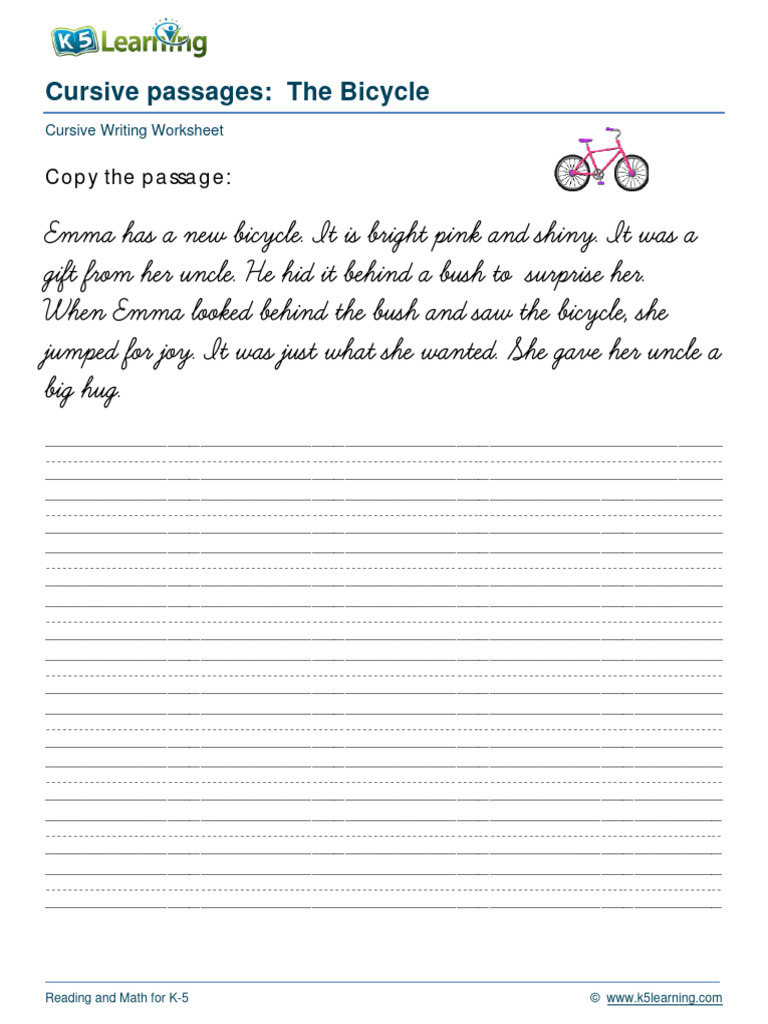 K5 Learning
Cursive passages: The Bicycle
Cursive Writing Worksheet
Copy the passage:
Emma has a new bicycle. It is bright pink and shiny. It was a
gift from her uncle. He hid it behind a bush to surprise her.
When Emma looked behind the bush and saw the bicycle, she
jumped for joy. It was just what she wanted. She gave her uncle a
big hug.
Reading and Math for K-5
© www.k5learning.com